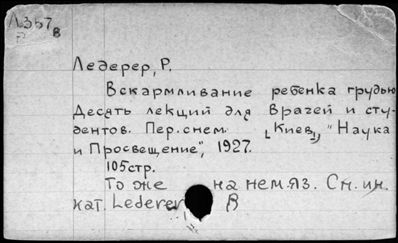 Л357
в
Ледерер, Р.
Вскармливание ребенка грудью
Десять лекций для врачей и сту-
дентов. Пер. с нем. [Киев], "Наука
и Просвещение", 1927.
105 стр.
То же на нем.яз. См. ин.
кат. Lederer R